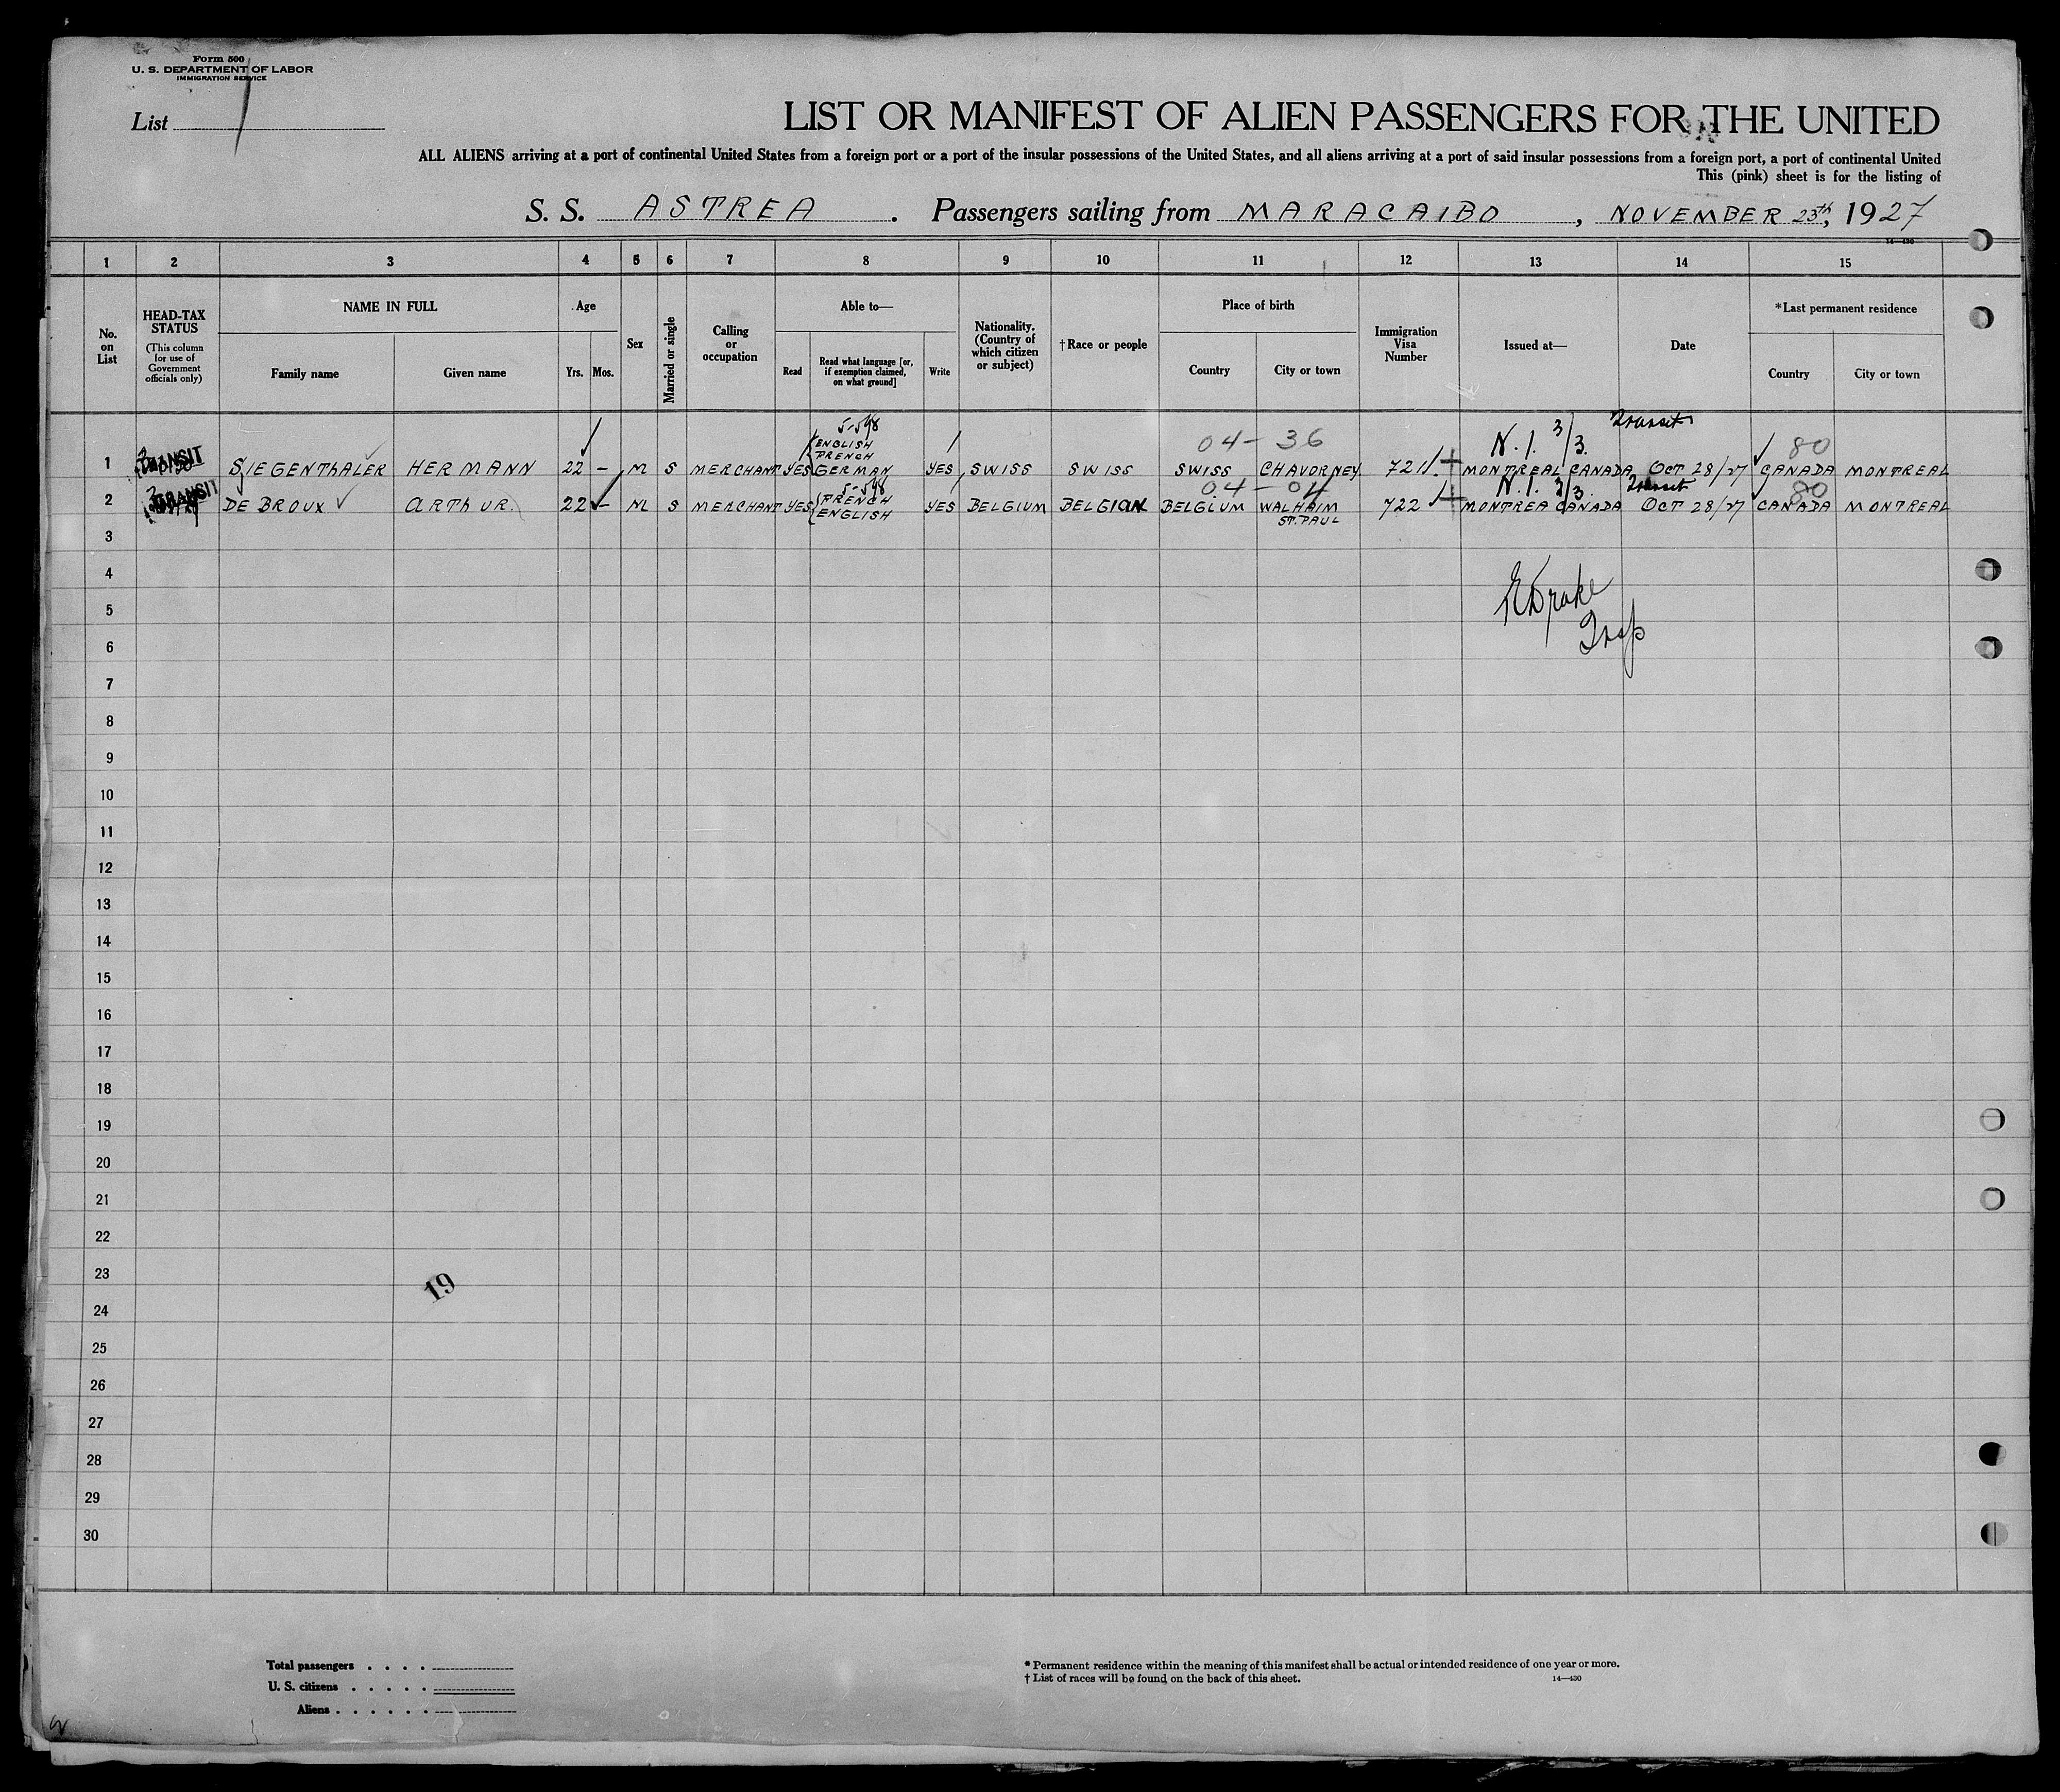 Form 500
U. S. DEPARTMENT OF LABOR
IMMIGRATION SERVICE
List
LIST OR MANIFEST OF ALIEN PASSENGERS FOR THE UNITED
ALL ALIENS arriving at a port of continental United States from a foreign port or a port of the insular possessions of the United States, and all aliens arriving at a port of said insular possessions from a foreign port, a port of continental United
This (pink) sheet is for the listing of
S. S. ASTREA . Passengers sailing from MARACAIBO , NOVEMBER 23th, 1927
14—430
1 2 3 4 5 6 7 8 9 10 11 12 13 14 15
No. on List
HEAD-TAX STATUS
(This column for use of Government officials only)
NAME IN FULL
Family name Given name
Age
Yrs. Mos.
Sex
Married or single
Calling or occupation
Able to—
Read
Read what language [or, if exemption claimed, on what ground]
Write
Nationality. (Country of which citizen or subject)
†Race or people
Place of birth
Country City or town
Immigration Visa Number
Issued at—
Date
*Last permanent residence
Country City or town
5-548 04-36 N.I. 3/3. Transit 80
ENGLISH
FRENCH
1 TRANSIT SIEGENTHALER HERMANN 22 – M S MERCHANT YES GERMAN YES SWISS SWISS SWISS CHAVORNEY 721 MONTREAL CANADA OCT 28/27 CANADA MONTREAL
5-548 04-04 N.I. 3/3. Transit 80
FRENCH
2 TRANSIT DE BROUX ARTHUR. 22 – M S MERCHANT YES ENGLISH YES BELGIUM BELGIAN BELGIUM WALHAIM ST. PAUL 722 MONTREA CANADA OCT 28/27 CANADA MONTREAL
3
4
5
Drake
6
Insp
7
8
9
10
11
12
13
14
15
16
17
18
19
20
21
22
23
19
24
25
26
27
28
29
30
Total passengers . . . .
U. S. citizens . . . . .
Aliens . . . . . .
* Permanent residence within the meaning of this manifest shall be actual or intended residence of one year or more.
† List of races will be found on the back of this sheet.
14—430